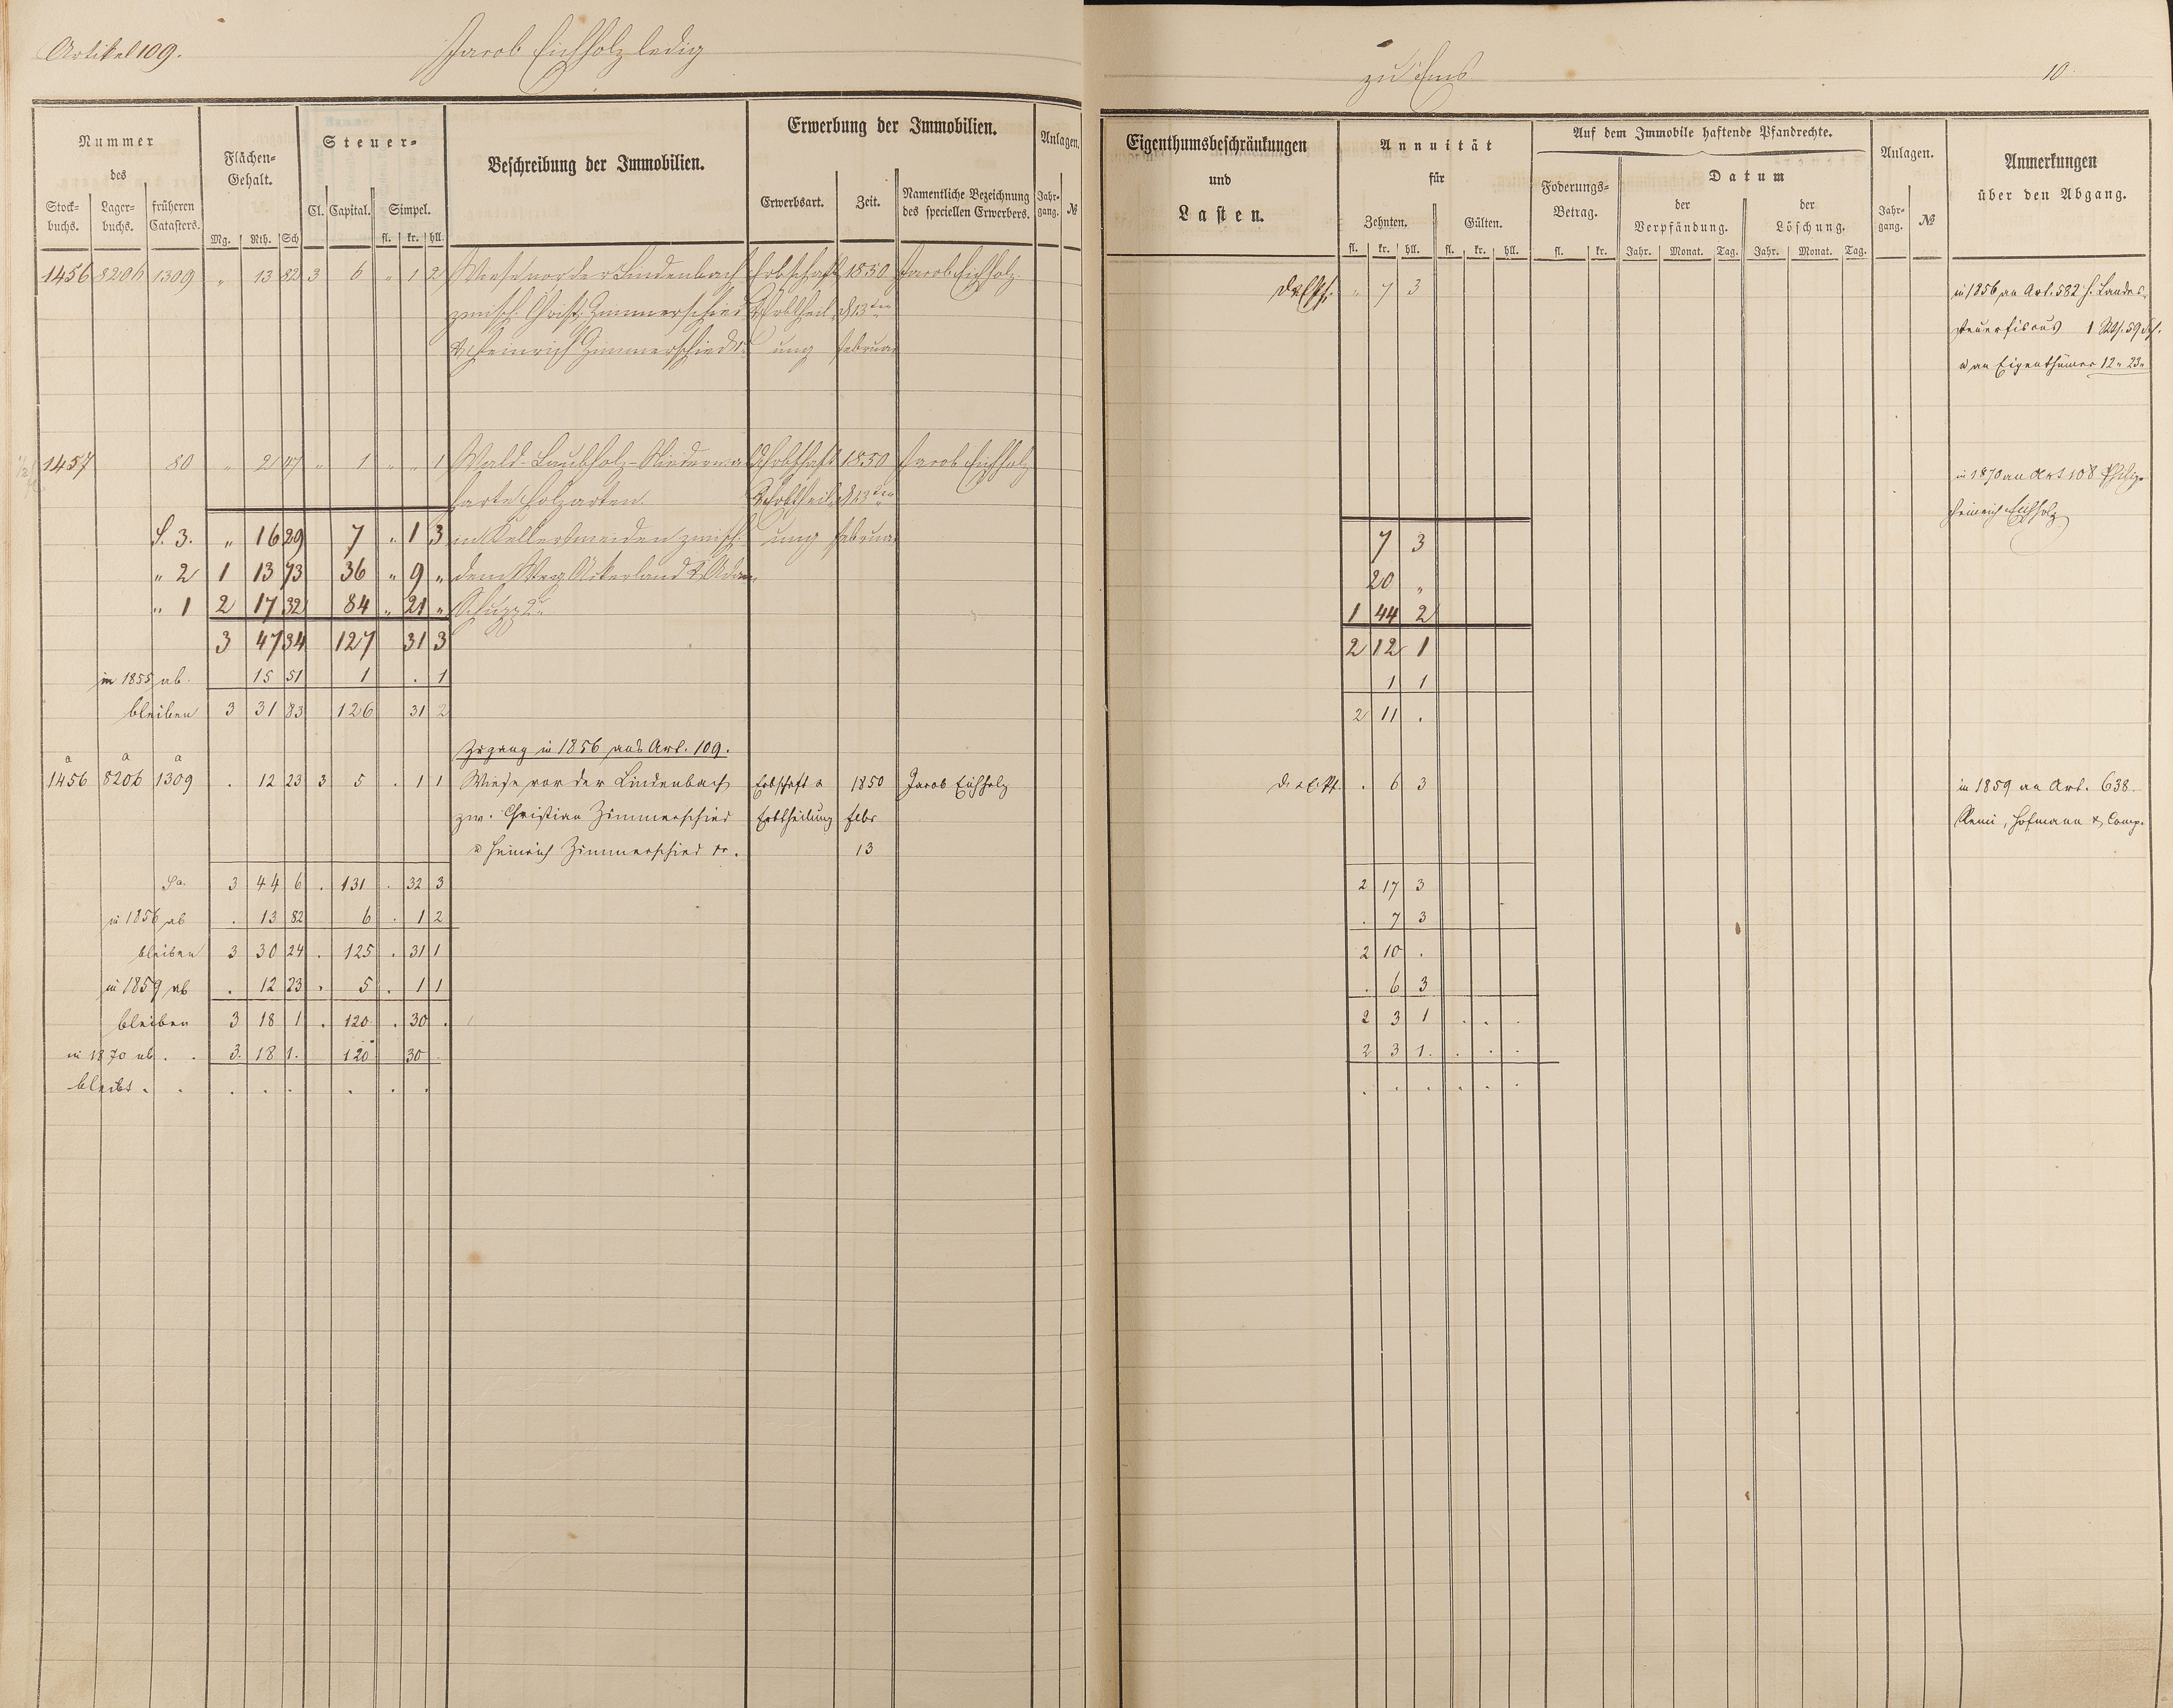 Artikel 109.
Jacob Eichholz ledig
zu Ems
10
Nummer
des
Stock-
buchs.
Lager-
buchs.
früheren
Catasters.
Flächen-
Gehalt.
Mg. Rth. Sch
Steuer-
Cl. Capital. Simpel.
fl. kr. hll.
Beschreibung der Immobilien.
Erwerbung der Immobilien.
Erwerbsart. Zeit.
Namentliche Bezeichnung
des speciellen Erwerbers.
Anlagen.
Jahr-
gang. №
Eigenthumsbeschränkungen
und
Lasten.
Annuität
für
Zehnten. Gülten.
fl. kr. hll. fl. kr. hll.
Auf dem Immobile haftende Pfandrechte.
Foderungs-
Betrag.
fl. kr.
Datum
der
Verpfändung.
der
Löschung.
Jahr. Monat. Tag. Jahr. Monat. Tag.
Anlagen.
Jahr-
gang. №
Anmerkungen
über den Abgang.
1456 8206 1309 " 13 82 3 6 " 1 2 Wiese vor der Lindenbach Erbschaft 1850 Jacob Eichholz " 7 3
zwisch. Christ. Zimmerschied & Erbtheil d 13ten
& Heinrich Zimmerschied ung Februar
in 1856 an Art. 582 h. Landes-
steuerfiscus 1 Rth. 59 Sch.
u an Eigenthümer 12 " 23 "
1457 80 " 2 47 " 1 " " 1 Wald-Laubholz-Niederwa Erbschaft 1850 Jacob Eichholz
harte Holzarten & Erbtheil d 13ten
in 1870 an Art 108 Philip
Heinrich Eichholz
S. 3. " 16 29 7 " 1 3 in Kellersweiden zwisch. ung Februar 7 3
" 2 1 13 73 36 " 9 " dem Weg Ackerland & Adam 20 "
" 1 2 17 32 84 " 21 " Schupp 2r 1 44 2
3 47 34 127 31 3 2 12 1
in 1855 ab. 15 51 1 . 1 1 1
bleiben 3 31 83 126 31 2 2 11 .
Zugang in 1856 aus Art. 109.
a a a
1456 8206 1309 . 12 23 3 5 . 1 1 Wiese vor der Lindenbach Erbschaft & 1850 Jacob Eichholz . 6 3 in 1859 an Art. 638.
zw. Christian Zimmerschied Erbtheilung Febr Remi, Hofmann & Comp.
u Heinrich Zimmerschied 13
Sa. 3 44 6 . 131 . 32 3 2 17 3
in 1856 ab . 13 82 6 . 1 2 . 7 3
bleiben 3 30 24 . 125 . 31 1 2 10 .
in 1859 ab . 12 23 . 5 . 1 1 . 6 3
bleiben 3 18 1 . 120 . 30 . 2 3 1 . . .
in 1870 ab . . 3. 18 1. 120 30 2 3 1. . . .
bleibt . . . . . . . . . . . . . .